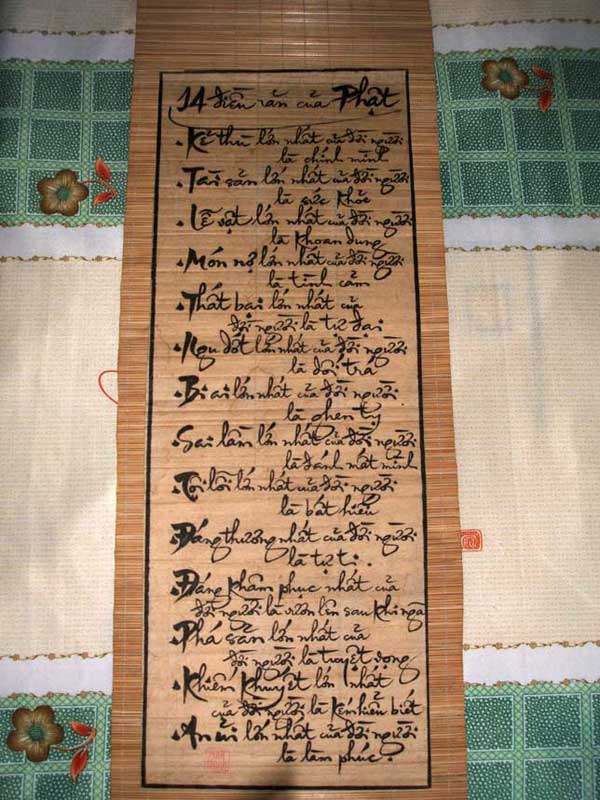 14 điều răn của Phật
Kẻ thù lớn nhất của đời người
là chính mình
Tài sản lớn nhất của đời người
là sức khỏe
Lễ vật lớn nhất của đời người
là khoan dung
Món nợ lớn nhất của đời người
là tình cảm
Thất bại lớn nhất của
đời người là tự đại
Ngu dốt lớn nhất của đời người
là dối trá
Bi ai lớn nhất của đời người
là ghen tỵ
Sai lầm lớn nhất của đời người
là đánh mất mình
Tội lỗi lớn nhất của đời người
là bất hiếu
Đáng thương nhất của đời người
là tự ti.
Đáng khâm phục nhất của
đời người là vươn lên sau khi ngã
Phá sản lớn nhất của
đời người là tuyệt vọng
Khiếm khuyết lớn nhất
của đời người là kém hiểu biết
An ủi lớn nhất của đời người
là làm phúc.